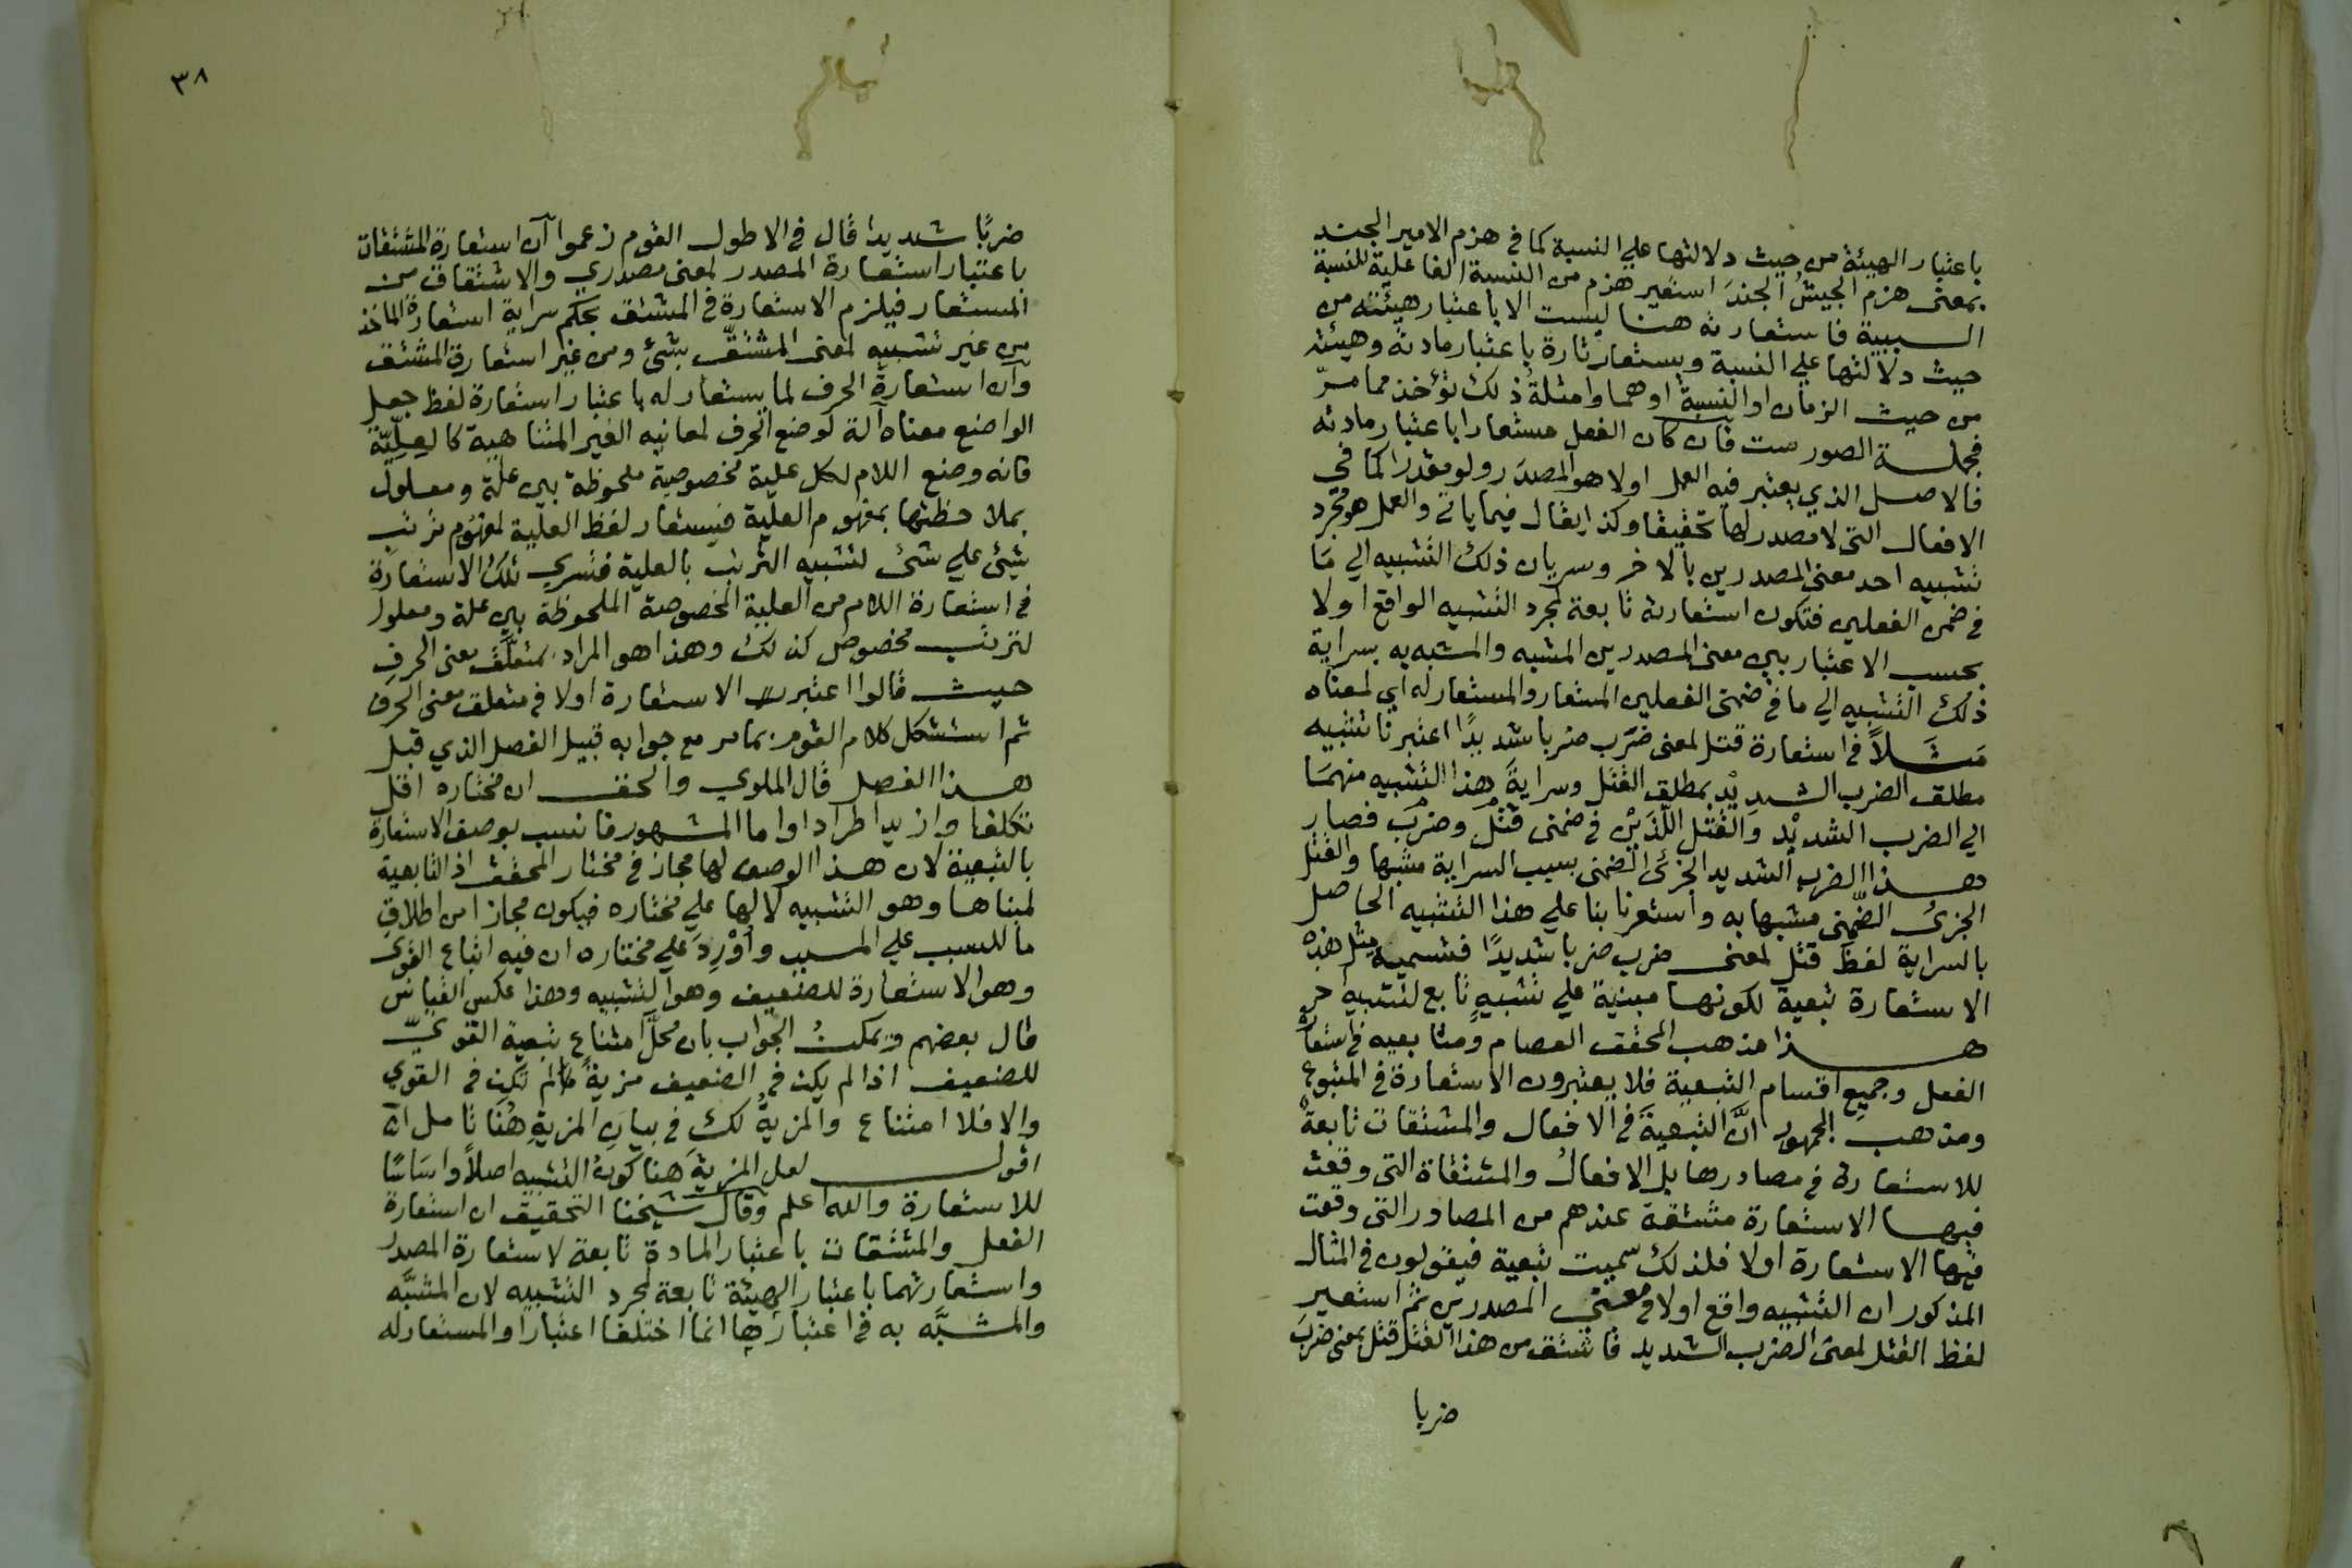 باعتبار الهيئة من حيث دلالتها علي النسبة كما في هزم الامير الجند
بمعني هزم الجيشُ الجندَ استعير هزم من النسبة الفاعلية للنسبة
السببية فاستعارته هنا ليست الا باعتبار هيئته من
حيث دلالتها علي النسبة ويستعار تارة باعتبار مادته وهيئته
من حيث الزمان او النسبة او هما وامثلة ذلك تؤخذ مما مرّ
فجملة الصور ست فان كان الفعل مستعارا باعتبار مادته
فالاصل الذي يعتبر فيه العمل اولا هو المصدر ولو مقدرا كما في
الافعال التي لا مصدر لها تحقيقا وكذا يقال فيما ياتي والعمل هو مجرد
تشبيه احد معني المصدرين بالاخر وسريان ذلك التشبيه الي مَا
في ضمن الفعلين فتكون استعارته تابعة لمجرد التشبيه الواقع اولا
بحسب الاعتبار بين معني المصدرين المشبه والمشبه به بسراية
ذلك التشبيه الي ما في ضمني الفعلين المستعار والمستعار له اي لمعناه
مَثَلاً في استعارة قتل لمعني ضرَب ضربا شديدًا اعتبرنا تشبيه
مطلق الضرب الشديد بمطلق القتل وسرايةَ هذا التشبيه منهمَا
الي الضرب الشديد والقتل اللذَين في ضمني قتل وضرب فصار
هذا الضرب الشديد الجزئي الضمني بسبب السراية مشبها والقتل
الجزئي الضمني مشبها به واستعرنا بنا علي هذا التشبيه الحاصل
بالسراية لفظ قتل لمعني ضرب ضربا شديدًا فتسمية مثل هذه
الاستعارة تبعية لكونها مبنية علي تشبيهٍ تابع لتشبيه اخر
هذا مذهب المحقق العصام ومتابعيه في استعارة
الفعل وجميع اقسام التبعية فلا يعتبرون الاستعارة في المتبوع
ومذهب الجمهور انَّ التبعيةَ في الافعال والمشتقات تابعةٌ
للاستعارة في مصادرها بل الافعالُ والمشتقاة التي وقعت
فيها الاستعارة مشتقة عندهم من المصادر التي وقعت
فيها الاستعارة اولا فلذلك سميت تبعية فيقولون في المثال
المذكور ان التشبيه واقع اولا في معني المصدرين ثم استعير
لفظ القتل لمعني الضرب الشديد فاشتق من هذا القتل قتل بمعني ضرَبَ
ضربا
٣٨
ضربًا شديدا قال في الاطول القوم زعموا ان استعارة المشتقات
باعتبار استعارة المصدر لمعني مصدري والاشتقاق من
المستعار فيلزم الاستعارة في المشتق بحكم سراية استعارة الماخذ
من غير تشبيه لمعني المشتقّ بشئ ومن غير استعارة المشتق
وان استعارة الحرف لما يستعار له باعتبار استعارة لفظ جعل
الواضع معناه آلة لوضع الحرف لمعانيه الغير المتناهية كالعِلِّيّة
فانه وضع اللام لكل علية مخصوصة ملحوظة بين علة ومعلول
بملاحظتها بمفهوم العلية فيستعار لفظ العلية لمفهوم ترتب
شئ علي شئ لتشبيه الترتب بالعلية فتسري تلك الاستعارة
في استعارة اللام من العلية المخصوصة الملحوظة بين علة ومعلول
لترتب مخصوص كذلك وهذا هو المراد بمتعلَّق معني الحرف
حيث قالوا اعتبرت الاستعارة اولا في متعلق معني الحرف
ثم استشكل كلام القوم بما مر مع جوابه قبيل الفصل الذي قبل
هذا الفصل قال الملوي والحق ان مختاره اقل
تكلفا وازيد اطرادا واما المشهور فانسب بوصف الاستعارة
بالتبعية لان هذا الوصف لها مجاز في مختار المحقق اذ التابعية
لمبناها وهو التشبيه لا لها علي مختاره فيكون مجازا من اطلاق
ما للسبب علي المسبب واُوْرِدَ علي مختاره ان فيه اتباع القوي
وهو الاستعارة للضعيف وهو التشبيه وهذا عكس القياس
قال بعضهم ويمكنُ الجواب بان محلَّ امتناع تبعية القويّ
للضعيف اذا لم يكن في الضعيف مزيةٌ ما لم تكن في القوي
والا فلا امتناع والمزيةُ لك في بيانِ المزيةِ هُنَا تامل ان
اقول لعل المزيةَ هنا كونُ التشبيه اصلاً واسَاسًا
للاستعارة والله اعلم وقال شيخنا التحقيق ان استعارة
الفعل والمشتقات باعتبار المادة تابعة لاستعارة المصدر
واستعارتهما باعتبار الهيئة تابعة لمجرد التشبيه لان المشبَّه
والمشبَّه به في اعتبارها انما اختلفا اعتبارا والمستعار له